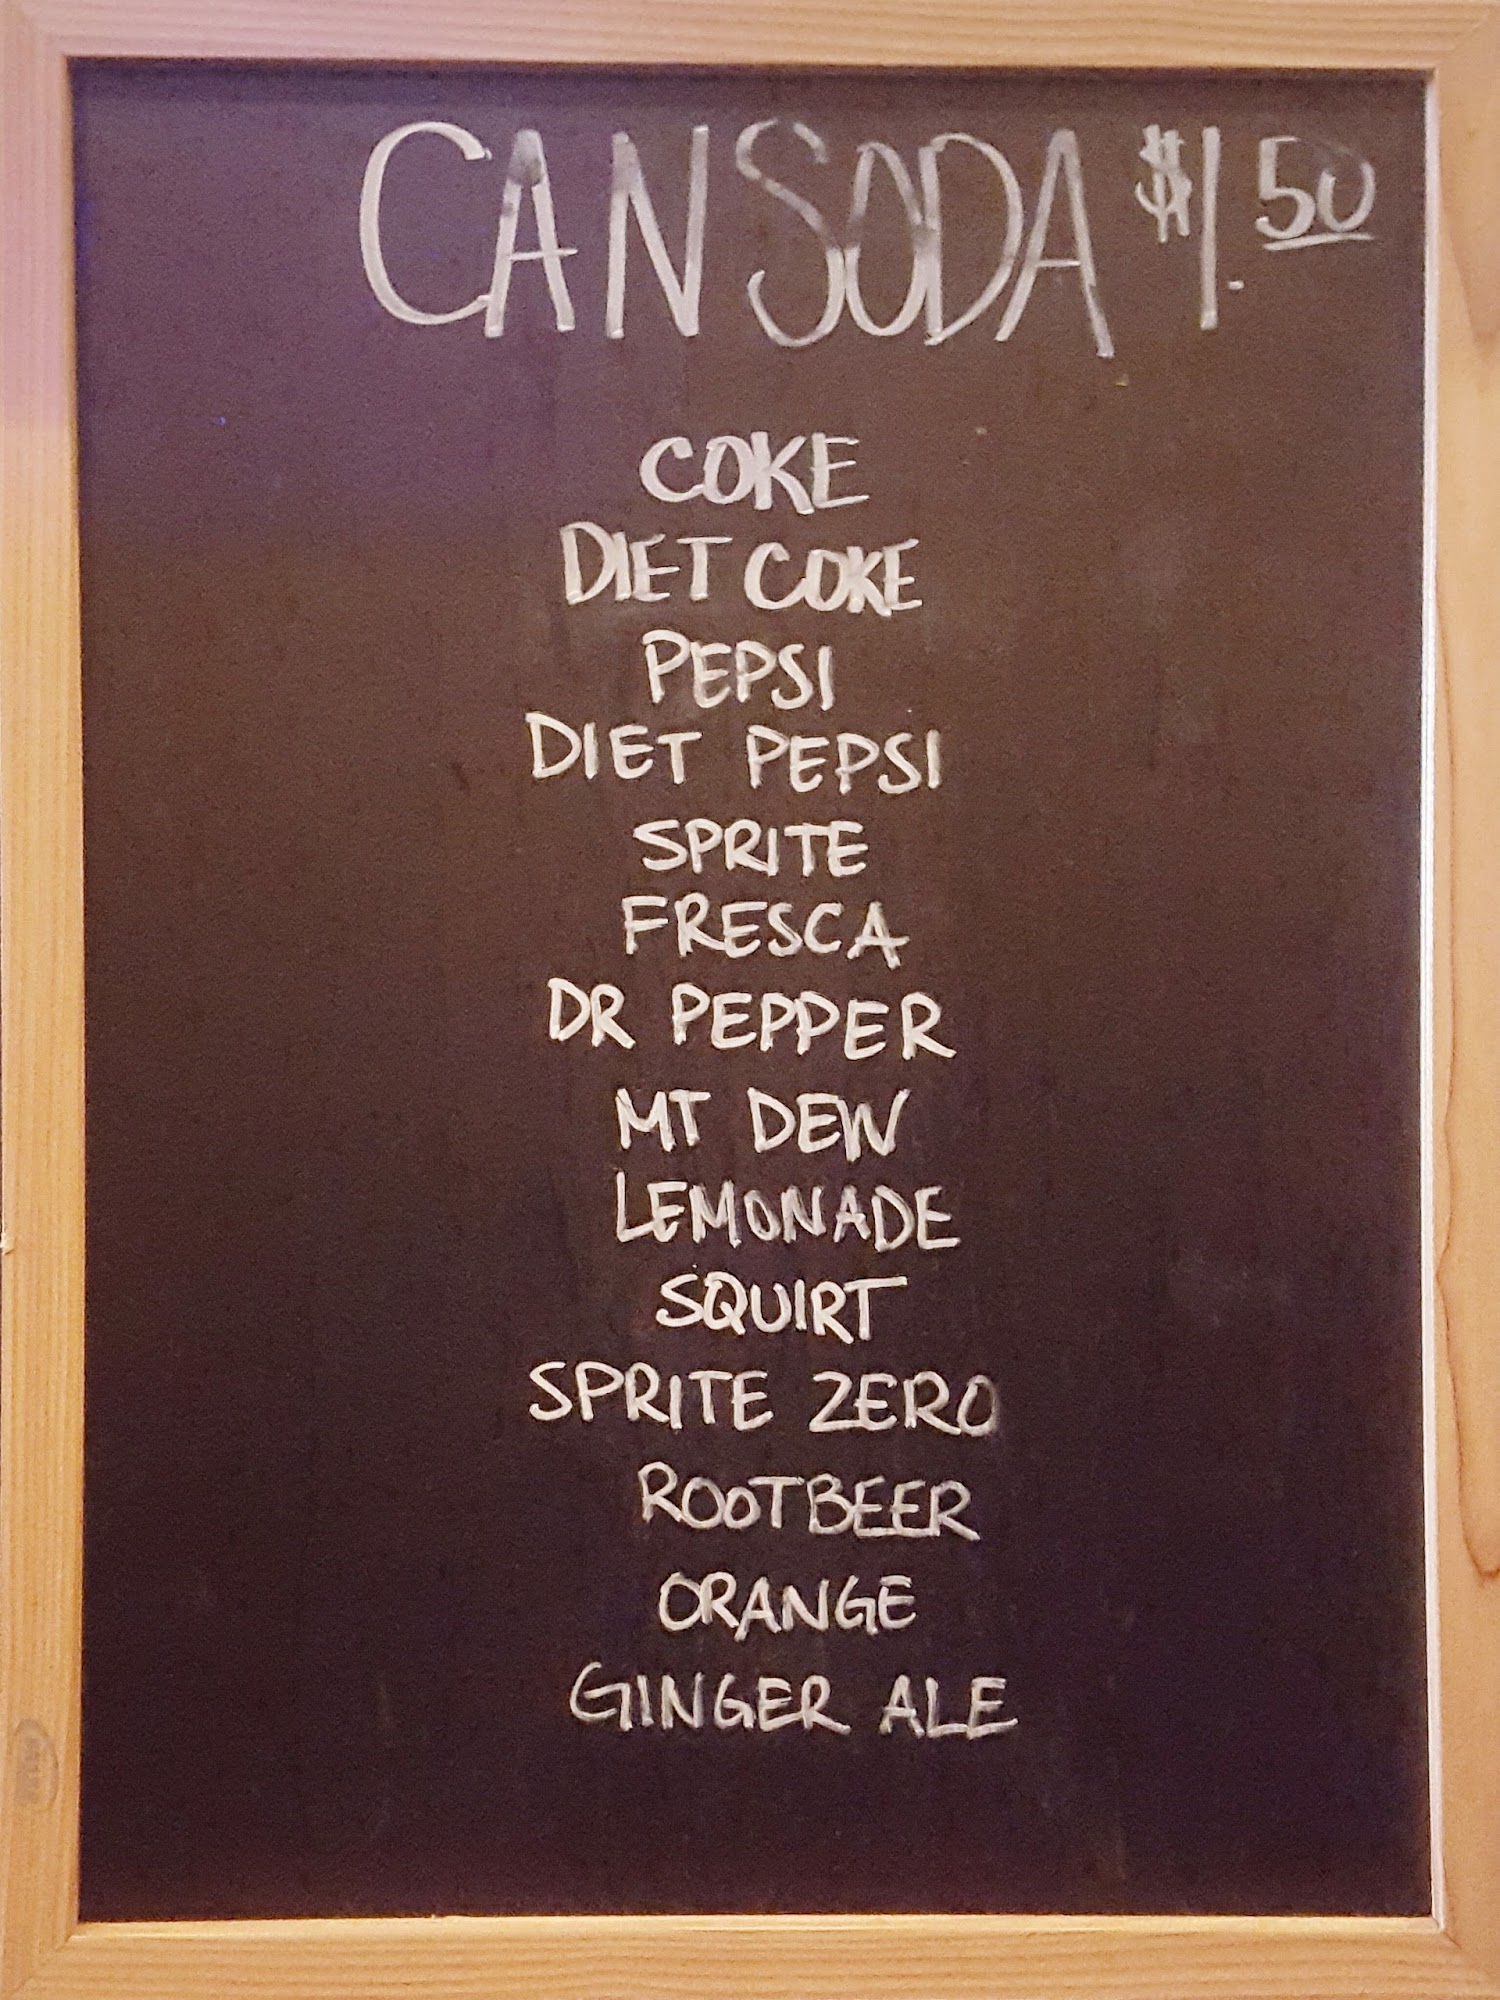 CAN SODA $1.50
COKE
DIET COKE
PEPSI
DIET PEPSI
SPRITE
FRESCA
DR PEPPER
MT DEW
LEMONADE
SQUIRT
SPRITE ZERO
ROOTBEER
ORANGE
GINGER ALE